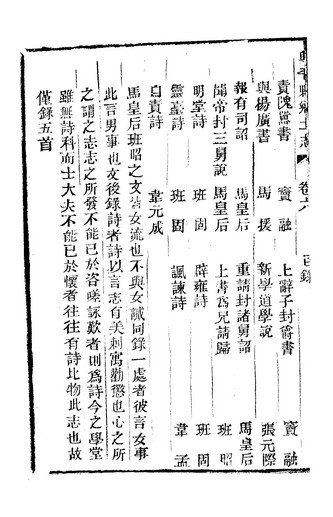 興平縣鄉土志 卷六 目錄
責隗囂書 竇融 上辭子封爵書 竇融
與楊廣書 馬援 新學道學說 張元際
報有司詔 馬皇后 重請封諸舅詔 馬皇后
聞帝封三舅說 馬皇后 上書為兄請歸 班昭
明堂詩 班固 辟雍詩 班固
靈臺詩 班固 諷諫詩 韋孟
自責詩 韋元成
馬皇后班昭之文皆女流也不與女誡同錄一處者彼言女事
此言男事也文後錄詩者詩以言志有美刺寓勸懲也心之所
之謂之志志之所發不能已於咨嗟詠歎者則為詩今之學堂
雖無詩科而士大夫不能已於懷者往往有詩比物此志也故
僅錄五首